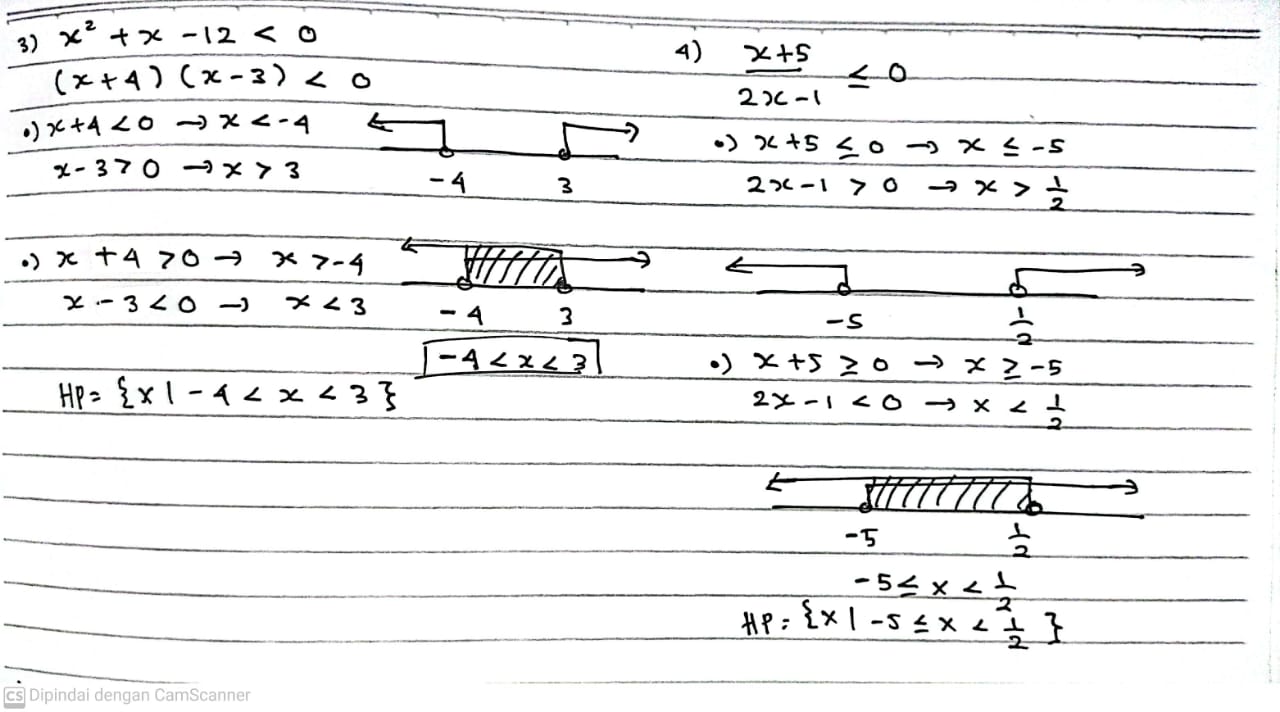 3) x² + x - 12 < 0
(x+4) (x-3) < 0
•) x+4 < 0 → x < -4
x-3 > 0 → x > 3
-4 3
•) x + 4 > 0 → x > -4
x - 3 < 0 → x < 3
-4 3
-4 < x < 3
HP = {x | -4 < x < 3}
4) x+5/2x-1 ≤ 0
•) x+5 ≤ 0 → x ≤ -5
2x-1 > 0 → x > 1/2
-5 1/2
•) x+5 ≥ 0 → x ≥ -5
2x-1 < 0 → x < 1/2
-5 1/2
-5 ≤ x < 1/2
HP = {x | -5 ≤ x < 1/2}
CS Dipindai dengan CamScanner